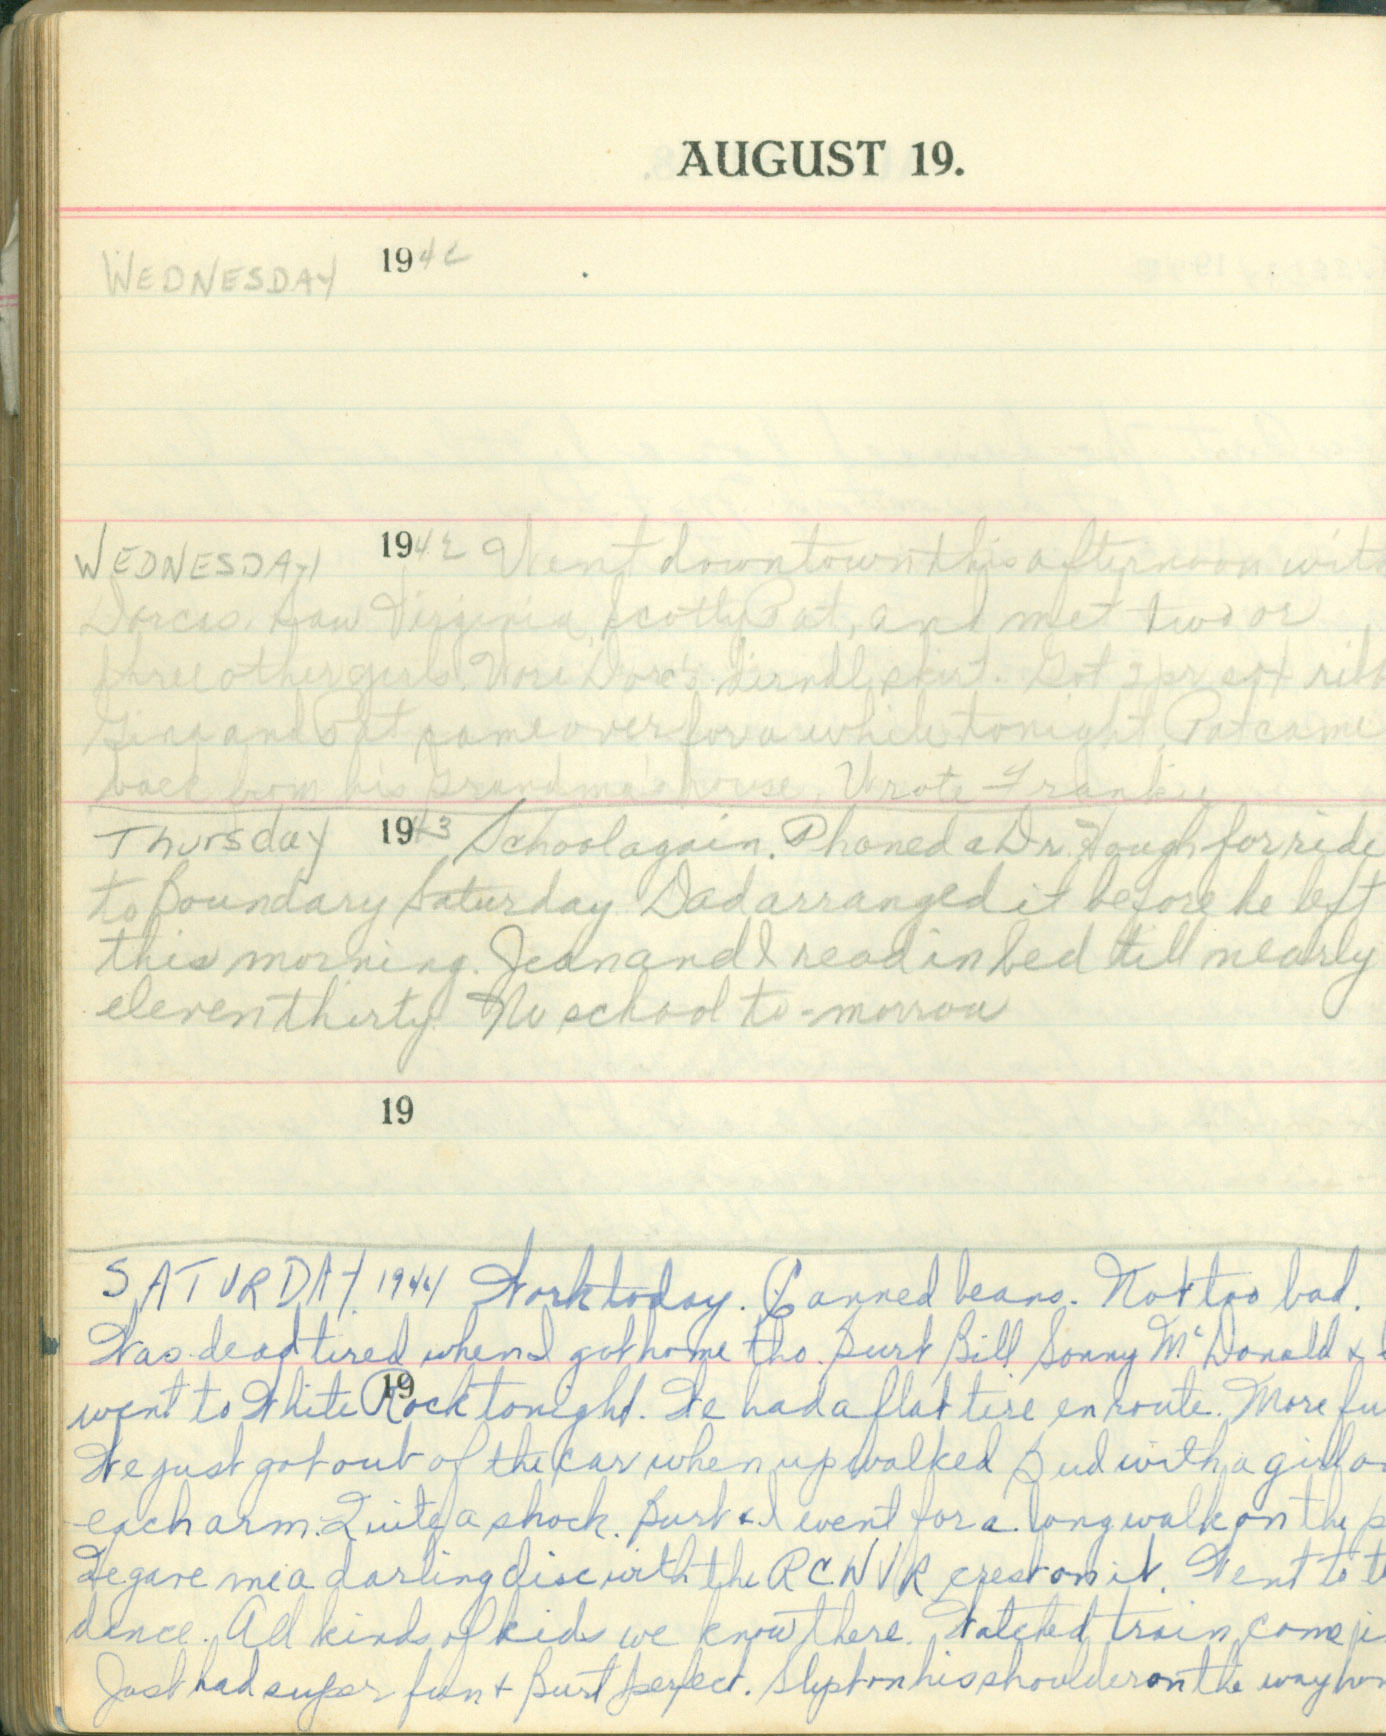 AUGUST 19.
WEDNESDAY 1942
WEDNESDAY 1942 Went downtown this afternoon with
Dorcas. Saw Virginia, Scotty, Pat, and met two or
three other girls. Wore Dorc's dirndl skirt. Got 2 pr sox
and Pat came over for a while tonight. Pat came
back from his Grandma's house. Wrote Franky
Thursday 1943 School again. Phoned a Dr. Hough for ride
to Boundary Saturday. Dad arranged it before he left
this morning. Jean and I read in bed till nearly
eleven thirty. No school to-morrow
19
SATURDAY. 1944 Work today. Canned beans. Not too bad.
Was dead tired when I got home tho. Burt Bill Sonny McDonald &
19
went to White Rock tonight. We had a flat tire en route. More fu
We just got out of the car when up walked Bud with a girl on
each arm. Quite a shock. Burt & I went for a long walk on the p
He gave me a darling disc with the RCNVR crest on it. Went to t
dance. All kinds of kids we know there. Watched train come i
Just had super fun & Burt perfect. Slept on his shoulder on the way hom